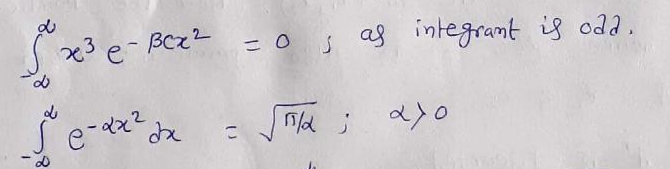 ∫_{-∞}^{∞} x³ e^{-βcx²} = 0 ; as integrant is odd.
∫_{-∞}^{∞} e^{-αx²} dx = √(π/α) ; α > 0